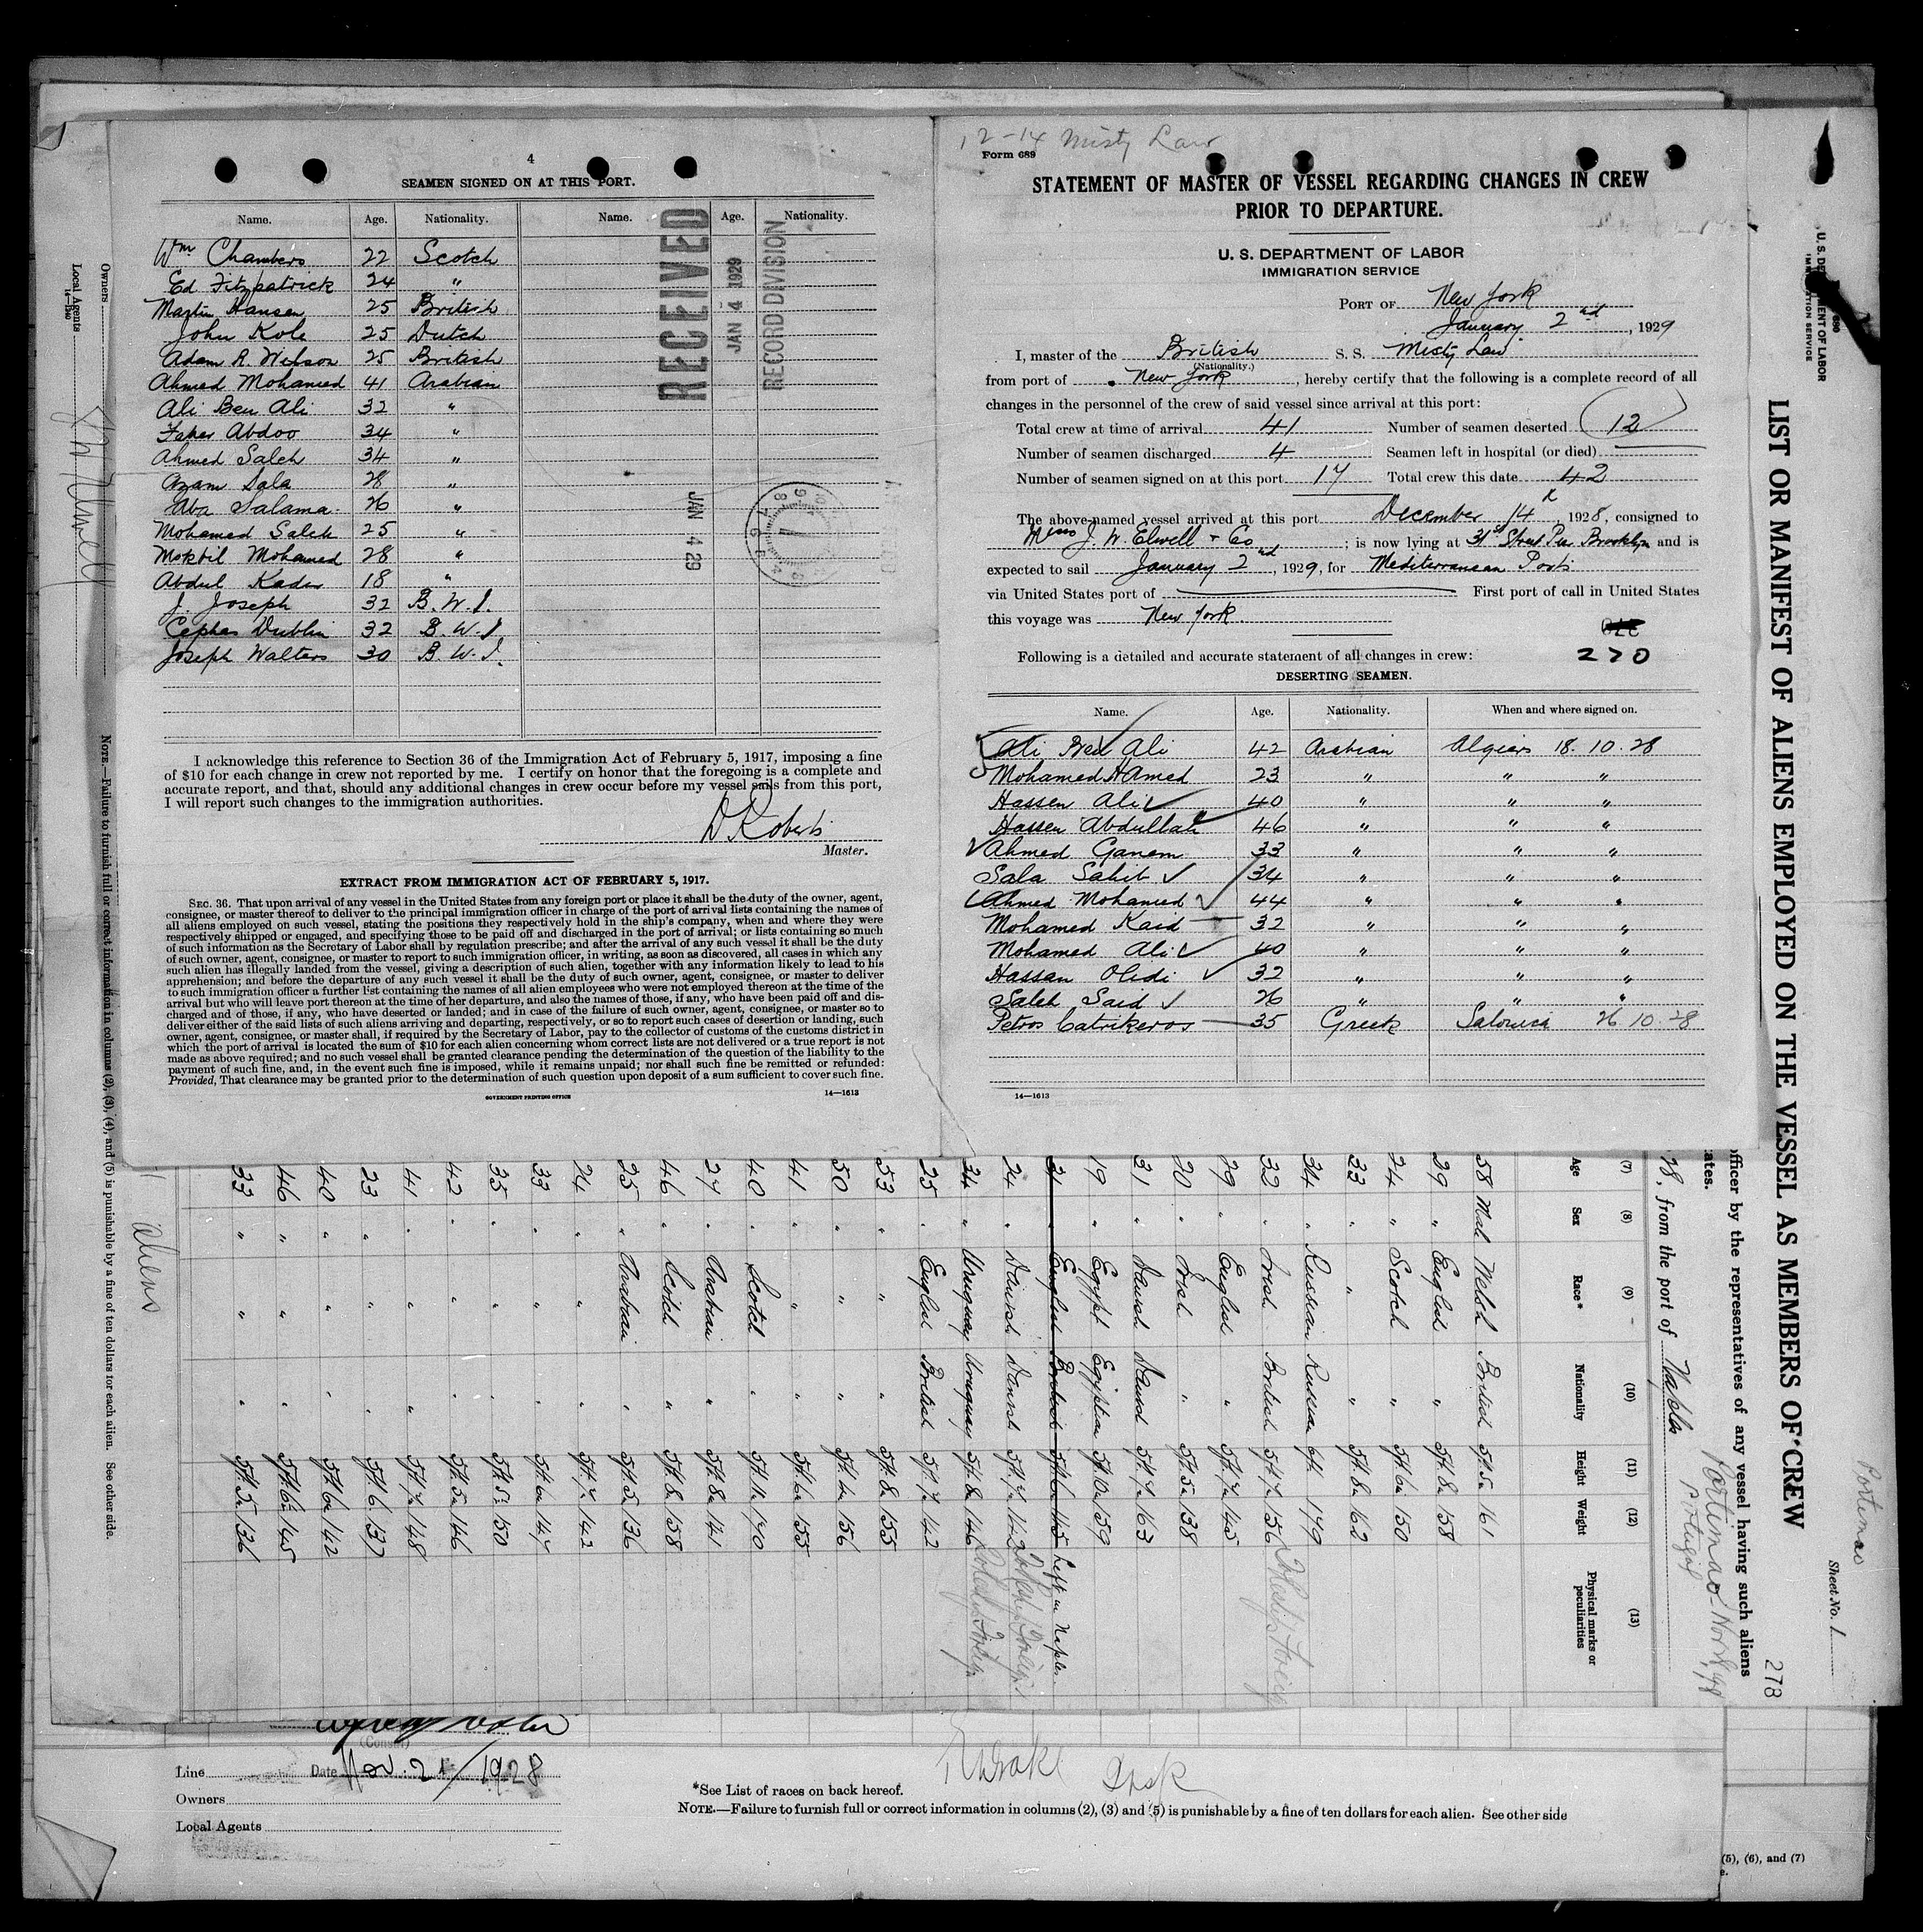 4
SEAMEN SIGNED ON AT THIS PORT.
Name. Age. Nationality. Name. Age. Nationality.
Wm Chambers 22 Scotch
Ed Fitzpatrick 24 "
Martin Hansen 25 British
John Kole 25 Dutch
Adam R. Wilson 25 British
Ahmed Mohamed 41 Arabian
Ali Ben Ali 32 "
Faher Abdoo 34 "
Ahmed Saleh 34 "
Azam Sala 28 "
Aba Salama 26 "
Mohamed Saleh 25 "
Mokbil Mohamed 28 "
Abdul Kader 18 "
J. Joseph 32 B. W. I.
Cephas Dublin 32 B. W. I.
Joseph Walters 30 B. W. I.
RECEIVED
JAN 4 1929
RECORD DIVISION
JAN 4 29
I acknowledge this reference to Section 36 of the Immigration Act of February 5, 1917, imposing a fine
of $10 for each change in crew not reported by me. I certify on honor that the foregoing is a complete and
accurate report, and that, should any additional changes in crew occur before my vessel sails from this port,
I will report such changes to the immigration authorities.
D Roberts
Master.
EXTRACT FROM IMMIGRATION ACT OF FEBRUARY 5, 1917.
SEC. 36. That upon arrival of any vessel in the United States from any foreign port or place it shall be the duty of the owner, agent,
consignee, or master thereof to deliver to the principal immigration officer in charge of the port of arrival lists containing the names of
all aliens employed on such vessel, stating the positions they respectively hold in the ship's company, when and where they were
respectively shipped or engaged, and specifying those to be paid off and discharged in the port of arrival; or lists containing so much
of such information as the Secretary of Labor shall by regulation prescribe; and after the arrival of any such vessel it shall be the duty
of such owner, agent, consignee, or master to report to such immigration officer, in writing, as soon as discovered, all cases in which any
such alien has illegally landed from the vessel, giving a description of such alien, together with any information likely to lead to his
apprehension; and before the departure of any such vessel it shall be the duty of such owner, agent, consignee, or master to deliver
to such immigration officer a further list containing the names of all alien employees who were not employed thereon at the time of the
arrival but who will leave port thereon at the time of her departure, and also the names of those, if any, who have been paid off and dis-
charged and of those, if any, who have deserted or landed; and in case of the failure of such owner, agent, consignee, or master so to
deliver either of the said lists of such aliens arriving and departing, respectively, or so to report such cases of desertion or landing, such
owner, agent, consignee, or master shall, if required by the Secretary of Labor, pay to the collector of customs of the customs district in
which the port of arrival is located the sum of $10 for each alien concerning whom correct lists are not delivered or a true report is not
made as above required; and no such vessel shall be granted clearance pending the determination of the question of the liability to the
payment of such fine, and, in the event such fine is imposed, while it remains unpaid; nor shall such fine be remitted or refunded:
Provided, That clearance may be granted prior to the determination of such question upon deposit of a sum sufficient to cover such fine.
GOVERNMENT PRINTING OFFICE
14—1613
12-14 Misty Law
Form 689
STATEMENT OF MASTER OF VESSEL REGARDING CHANGES IN CREW
PRIOR TO DEPARTURE.
U. S. DEPARTMENT OF LABOR
IMMIGRATION SERVICE
PORT OF New York
January 2nd, 1929
I, master of the British S. S. Misty Law
(Nationality.)
from port of New York, hereby certify that the following is a complete record of all
changes in the personnel of the crew of said vessel since arrival at this port:
Total crew at time of arrival 41 Number of seamen deserted 12
Number of seamen discharged 4 Seamen left in hospital (or died)
Number of seamen signed on at this port 17 Total crew this date 42
The above-named vessel arrived at this port December 14, 1928, consigned to
Messrs J. W. Elwell & Co; is now lying at 31st Street Pier Brooklyn and is
expected to sail January 2nd, 1929, for Mediterranean Ports
via United States port of First port of call in United States
this voyage was New York.
Following is a detailed and accurate statement of all changes in crew: 270
DESERTING SEAMEN.
Name. Age. Nationality. When and where signed on.
Ali Ben Ali 42 Arabian Algiers 18. 10. 28
Mohamed Hamed 23 " " "
Hassen Ali 40 " " "
Hassen Abdullah 46 " " "
Ahmed Ganem 33 " " "
Sala Sahib 34 " " "
Ahmed Mohamed 44 " " "
Mohamed Kaid 32 " " "
Mohamed Ali 40 " " "
Hassan Obdi 32 " " "
Saleh Said 26 " " "
Petros Catrikeros 35 Greek Salonica 26 10. 28
14—1613
U. S. DEPARTMENT OF LABOR
IMMIGRATION SERVICE
LIST OR MANIFEST OF ALIENS EMPLOYED ON THE VESSEL AS MEMBERS OF CREW
Sheet No. 1
Portimao
278
officer by the representatives of any vessel having such aliens
ates.
28, from the port of Naples
Portimao
Portugal
(7) (8) (9) (10) (11) (12) (13)
Age Sex Race* Nationality Height Weight Physical marks or peculiarities
58 Male Welsh British 5ft. 5 161
29 " English " 5ft. 8 158
24 " Scotch " 5ft. 6 150
33 " " " 5ft. 8 162
34 " Russian Russian 6ft. 179
32 " Irish British 5ft. 7 156
29 " English " 5ft. 7 145
20 " Irish " 5ft. 5 138
31 " Danish Danish 5ft. 7 163
19 " Egypt Egyptian 5ft. 10 159
21 English British 5ft. 6 145 Left in Naples.
24 " Danish Danish 5ft. 7 142
34 " Uruguay Uruguay 5ft. 8 146
25 " English British 5ft. 7 142
53 " " " 5ft. 8 155
50 " " " 5ft. 4 156
41 " " " 5ft. 6 155
40 " Scotch " 5ft. 11 170
27 " Arabian " 5ft. 8 141
46 " Scotch " 5ft. 8 158
25 " Arabian " 5ft. 5 136
24 " " " 5ft. 7 142
33 " " " 5ft. 6 147
35 " " " 5ft. 5 150
42 " " " 5ft. 5 146
41 " " " 5ft. 7 148
23 " " " 5ft. 6 137
40 " " " 5ft. 6 142
46 " " " 5ft. 6 145
33 " " " 5ft. 5 136
Aliens
Owners
Local Agents
14—1240
NOTE.—Failure to furnish full or correct information in columns (2), (3), (4), and (5) is punishable by a fine of ten dollars for each alien. See other side.
(Consul)
Line Date Nov. 21/1928
Owners
Local Agents
*See List of races on back hereof.
NOTE.—Failure to furnish full or correct information in columns (2), (3) and (5) is punishable by a fine of ten dollars for each alien. See other side
(5), (6), and (7)